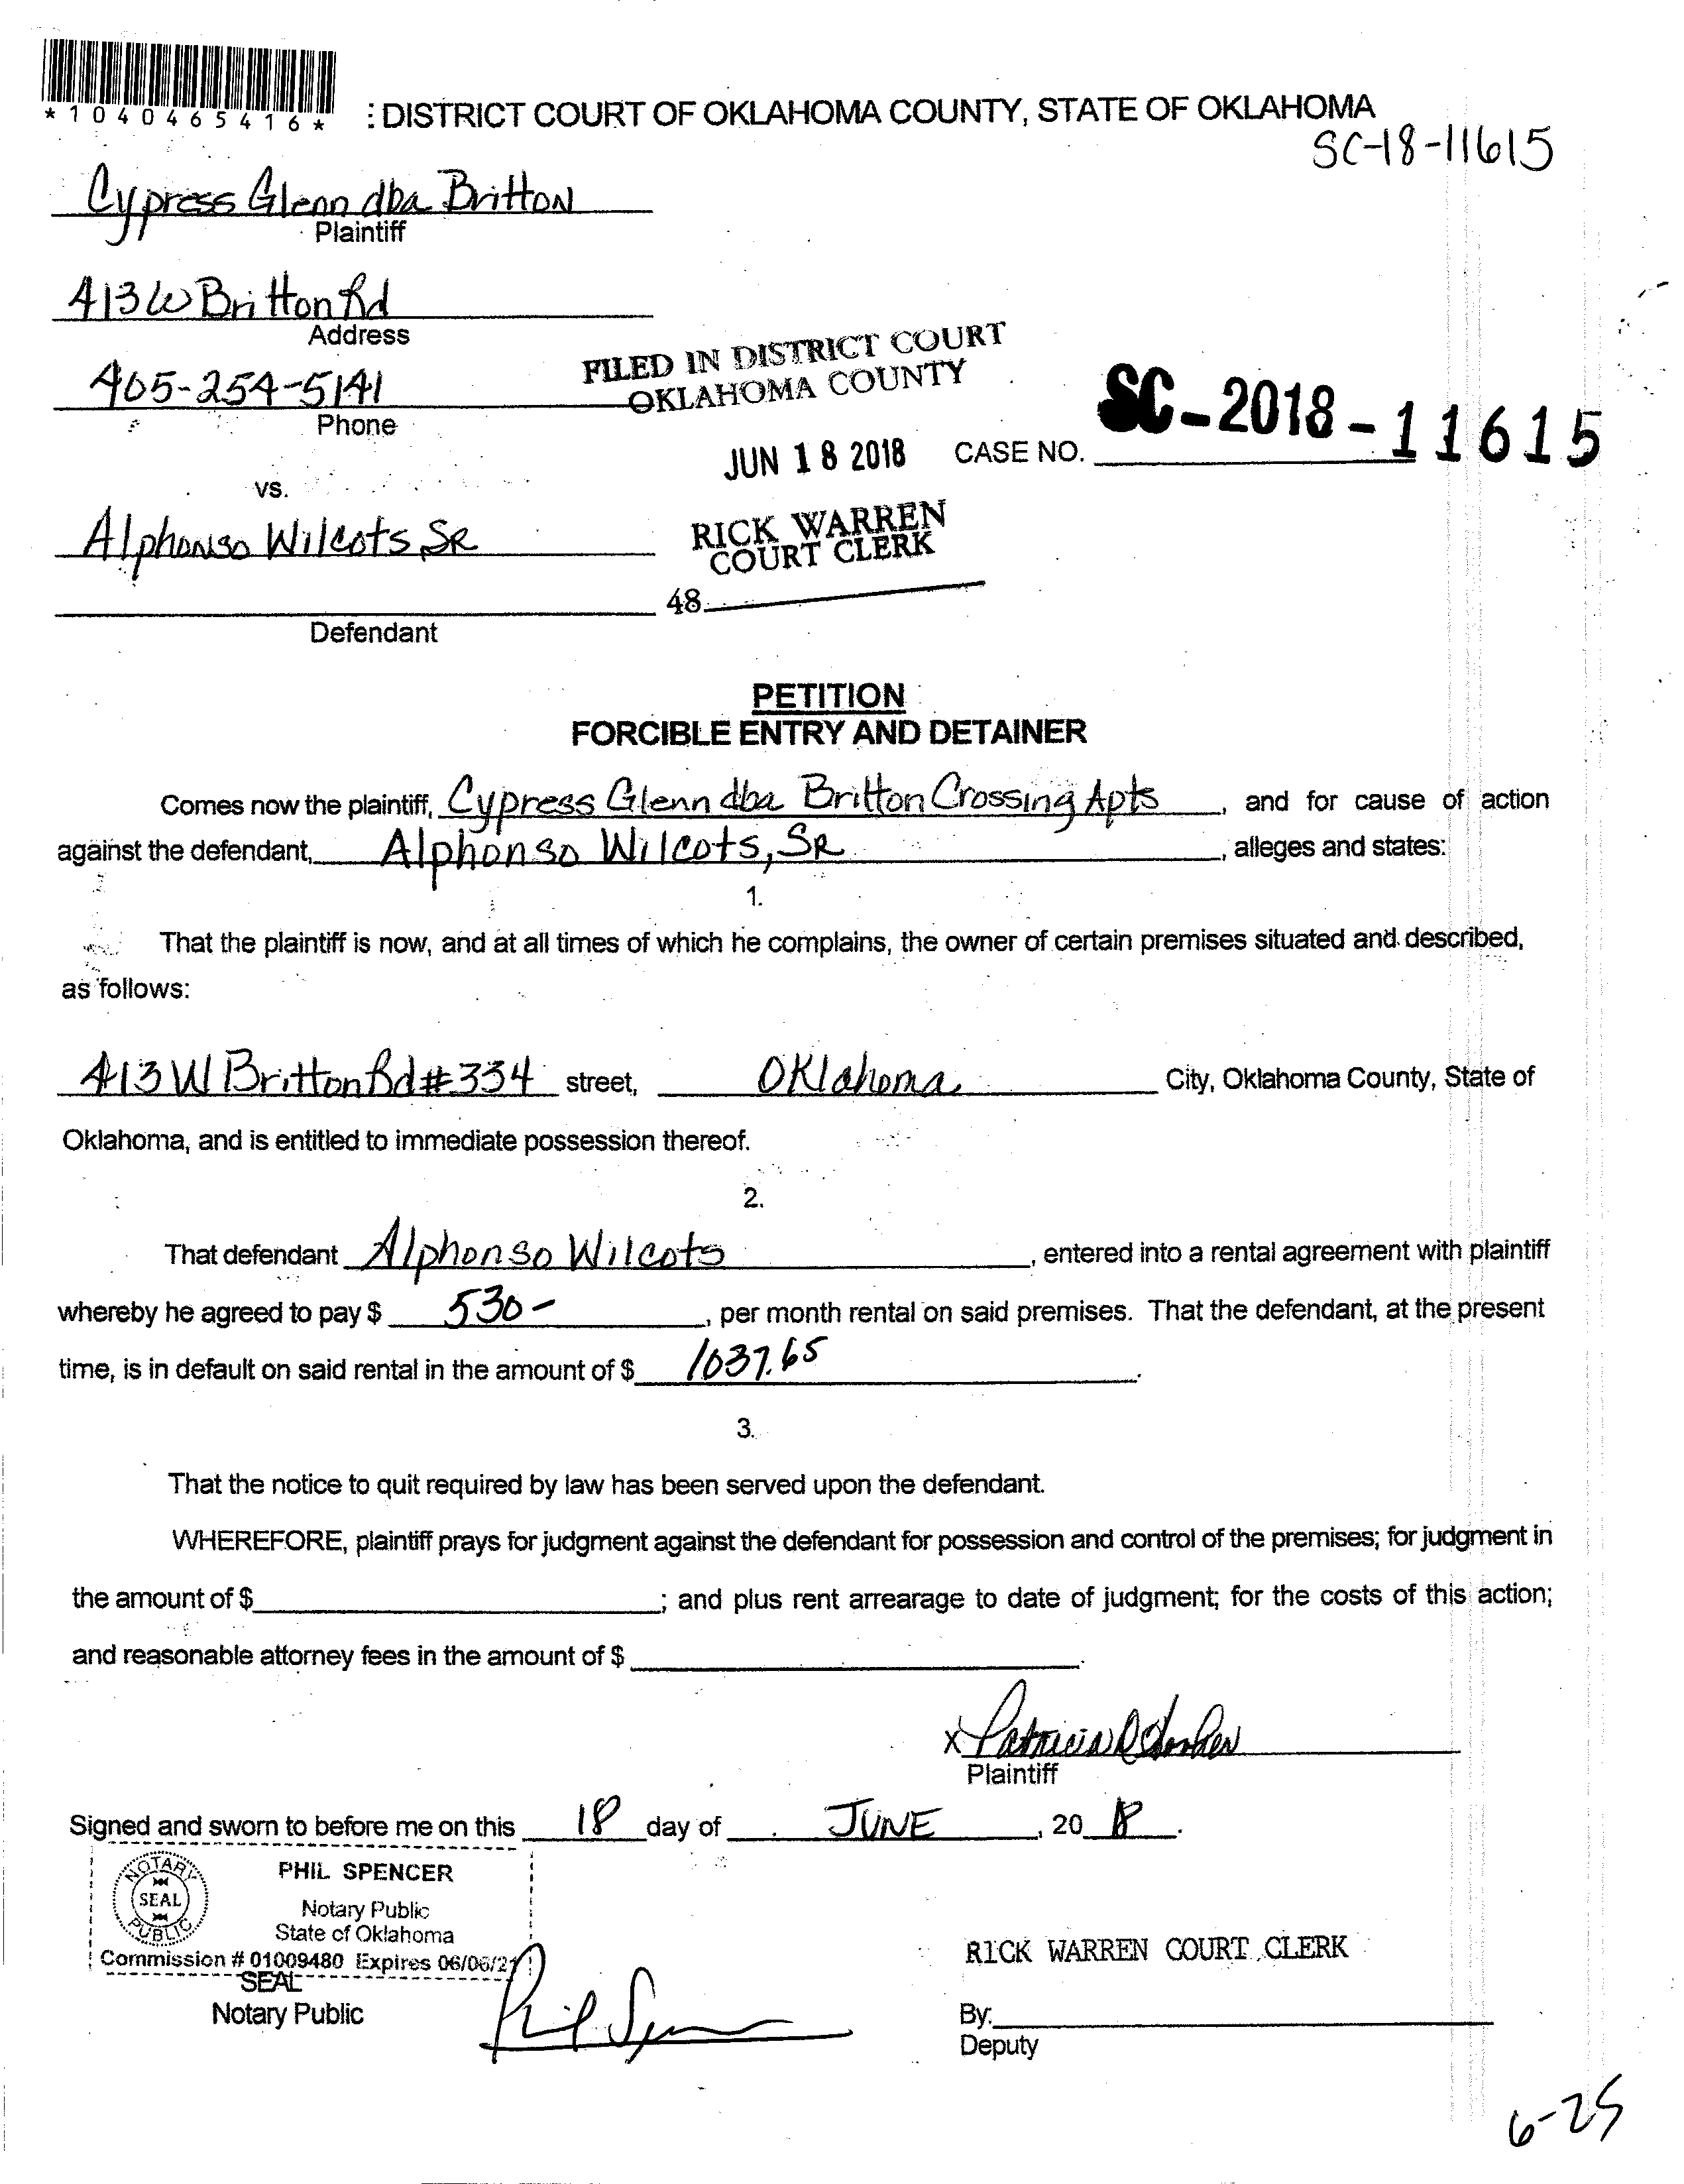 *1040465416*
: DISTRICT COURT OF OKLAHOMA COUNTY, STATE OF OKLAHOMA
SC-18-11615
Cypress Glenn dba Britton
Plaintiff
413 W Britton Rd
Address
405-254-5141
Phone
FILED IN DISTRICT COURT
OKLAHOMA COUNTY
JUN 18 2018 CASE NO. SC-2018-11615
vs.
Alphonso Wilcots, SR
RICK WARREN
COURT CLERK
48
Defendant
PETITION
FORCIBLE ENTRY AND DETAINER
Comes now the plaintiff, Cypress Glenn dba Britton Crossing Apts, and for cause of action
against the defendant, Alphonso Wilcots, SR, alleges and states:
1.
That the plaintiff is now, and at all times of which he complains, the owner of certain premises situated and described,
as follows:
413 W Britton Rd #334 street, Oklahoma City, Oklahoma County, State of
Oklahoma, and is entitled to immediate possession thereof.
2.
That defendant Alphonso Wilcots, entered into a rental agreement with plaintiff
whereby he agreed to pay $ 530-, per month rental on said premises. That the defendant, at the present
time, is in default on said rental in the amount of $ 1037.65.
3.
That the notice to quit required by law has been served upon the defendant.
WHEREFORE, plaintiff prays for judgment against the defendant for possession and control of the premises; for judgment in
the amount of $ ; and plus rent arrearage to date of judgment; for the costs of this action;
and reasonable attorney fees in the amount of $ .
x Patricia
Plaintiff
Signed and sworn to before me on this 18 day of JUNE, 2018.
NOTARY PUBLIC SEAL
PHIL SPENCER
Notary Public
State of Oklahoma
Commission # 01009480 Expires 06/06/21
SEAL
Notary Public
Phil Spencer
RICK WARREN COURT CLERK
By:
Deputy
6-25